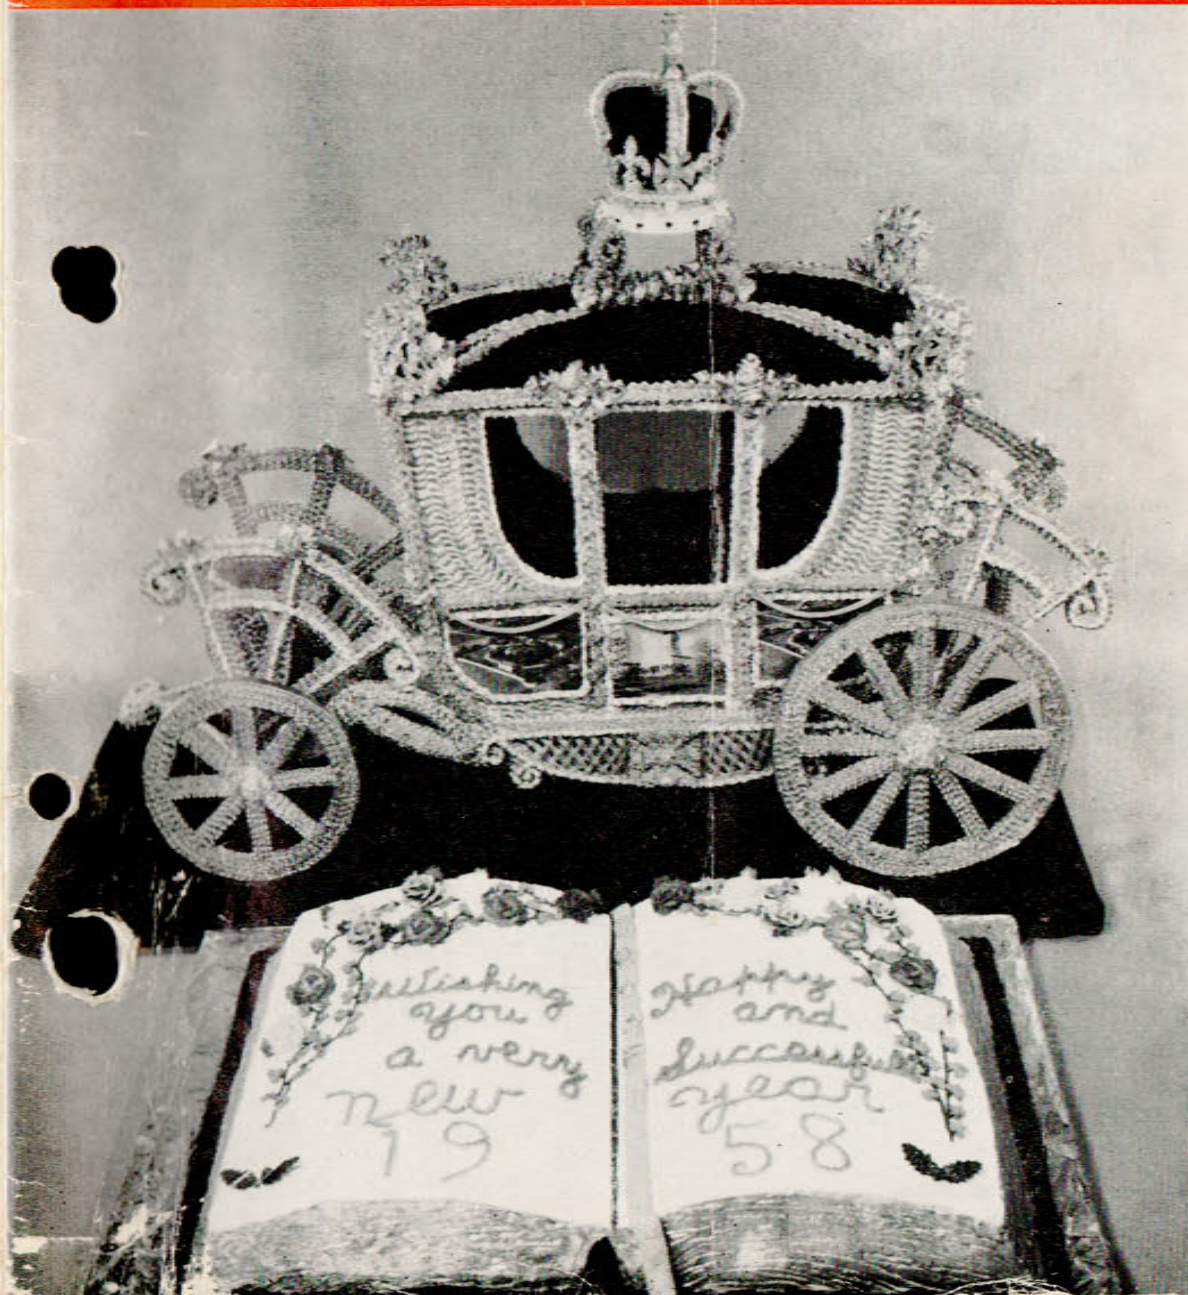 Wishing
you
a very
New
19
Happy
and
Successful
year
58